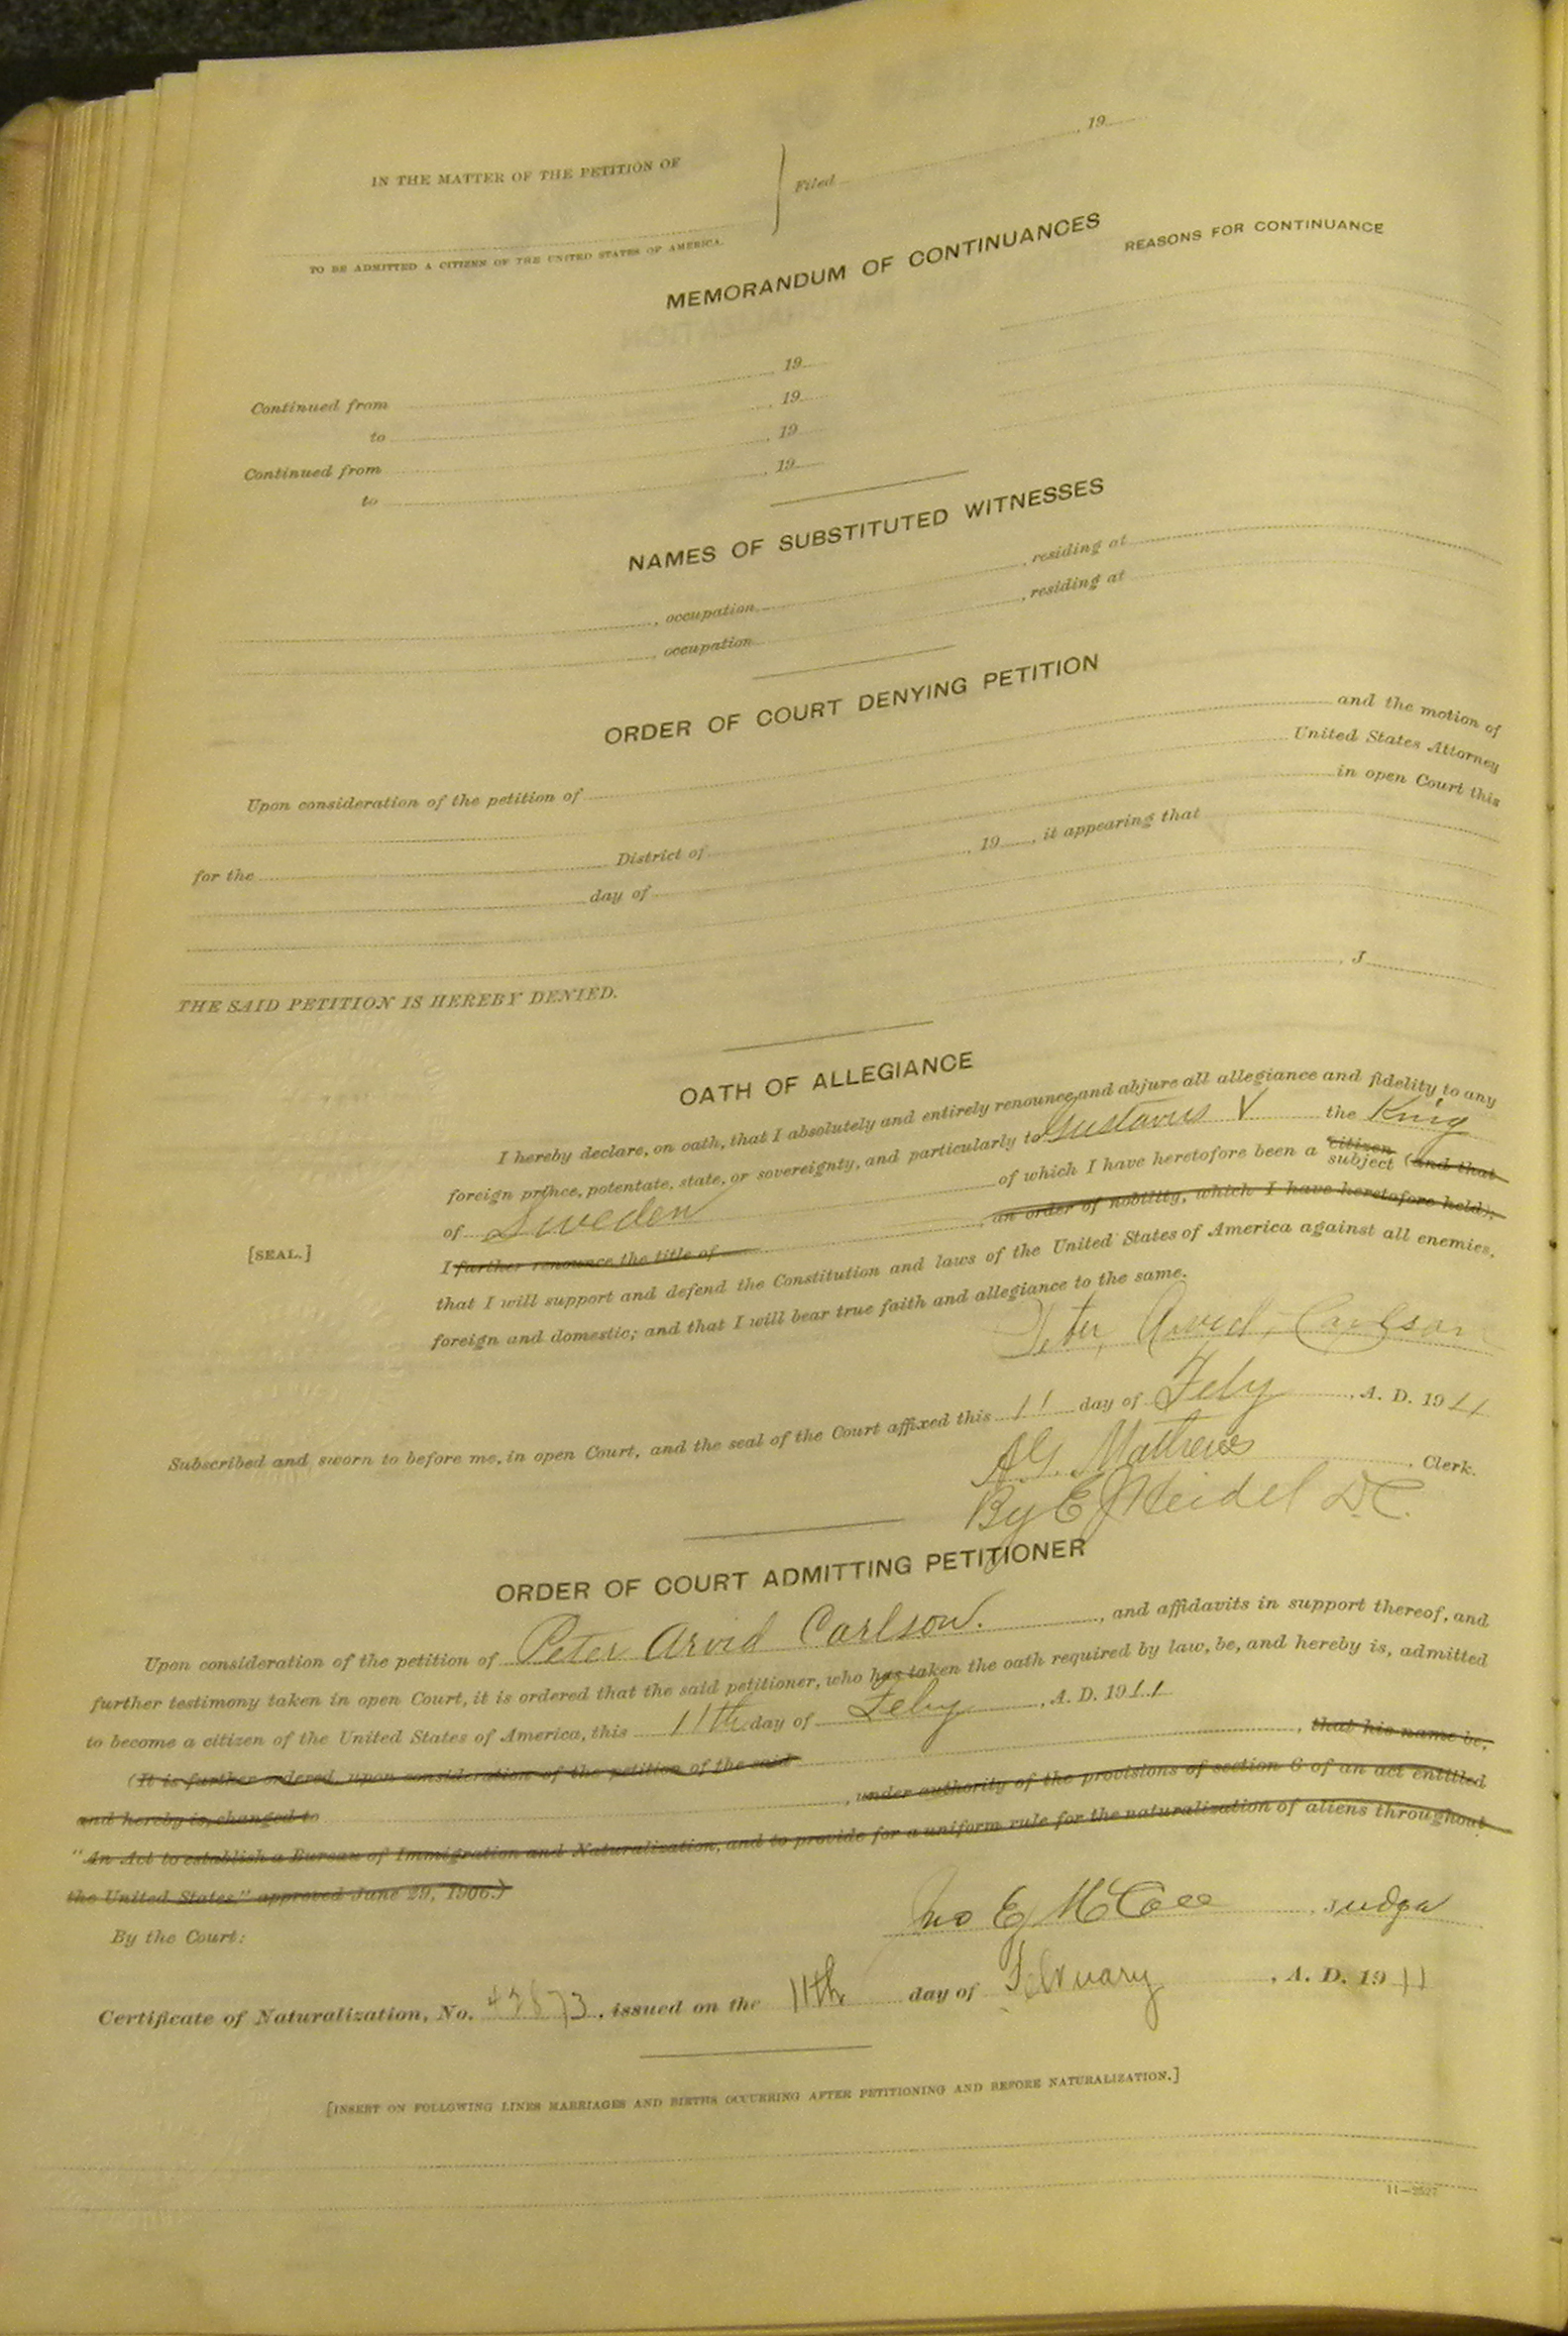 IN THE MATTER OF THE PETITION OF
Filed , 19
TO BE ADMITTED A CITIZEN OF THE UNITED STATES OF AMERICA.
MEMORANDUM OF CONTINUANCES
REASONS FOR CONTINUANCE
Continued from , 19
to , 19
Continued from , 19
to , 19
NAMES OF SUBSTITUTED WITNESSES
, occupation , residing at
, occupation , residing at
ORDER OF COURT DENYING PETITION
Upon consideration of the petition of and the motion of
United States Attorney
for the District of in open Court this
day of , 19 , it appearing that
THE SAID PETITION IS HEREBY DENIED.
, J
OATH OF ALLEGIANCE
I hereby declare, on oath, that I absolutely and entirely renounce and abjure all allegiance and fidelity to any
foreign prince, potentate, state, or sovereignty, and particularly to Gustavus V the King
of Sweden of which I have heretofore been a citizen subject (and that
[SEAL.]
I further renounce the title of , an order of nobility, which I have heretofore held),
that I will support and defend the Constitution and laws of the United States of America against all enemies,
foreign and domestic; and that I will bear true faith and allegiance to the same.
Peter Arvid Carlson
Subscribed and sworn to before me, in open Court, and the seal of the Court affixed this 11 day of Feby , A. D. 1911
A G. Mathews , Clerk.
By E Heidel D.C.
ORDER OF COURT ADMITTING PETITIONER
Upon consideration of the petition of Peter Arvid Carlson. , and affidavits in support thereof, and
further testimony taken in open Court, it is ordered that the said petitioner, who has taken the oath required by law, be, and hereby is, admitted
to become a citizen of the United States of America, this 11th day of Feby , A. D. 1911
(It is further ordered, upon consideration of the petition of the said , that his name be,
and hereby is, changed to , under authority of the provisions of section 6 of an act entitled
"An Act to establish a Bureau of Immigration and Naturalization, and to provide for a uniform rule for the naturalization of aliens throughout
the United States," approved June 29, 1906.)
By the Court: Jno E , Judge
Certificate of Naturalization, No. , issued on the 11th day of February , A. D. 1911
[INSERT ON FOLLOWING LINES MARRIAGES AND BIRTHS OCCURRING AFTER PETITIONING AND BEFORE NATURALIZATION.]
11—2527